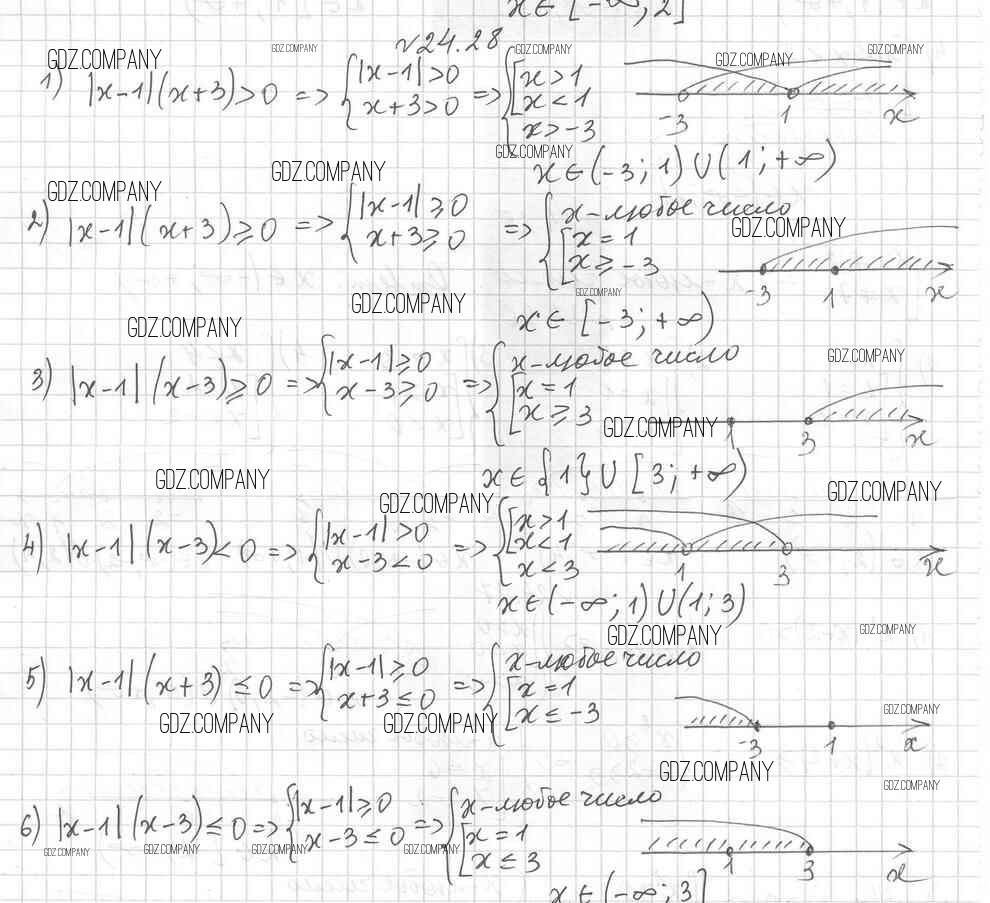 x ∈ [-∞; 2]
№24.28
GDZ.COMPANY GDZ.COMPANY GDZ.COMPANY GDZ.COMPANY GDZ.COMPANY
1) |x-1|(x+3)>0 => { |x-1|>0 => { [ x>1
x+3>0 x<1
x>-3
-3 1 x
GDZ.COMPANY
x ∈ (-3; 1) ∪ (1; +∞)
GDZ.COMPANY GDZ.COMPANY
2) |x-1|(x+3)≥0 => { |x-1|≥0 => { x-любое число
x+3≥0 [ x=1
x≥-3
GDZ.COMPANY
-3 1 x
GDZ.COMPANY
x ∈ [-3; +∞)
GDZ.COMPANY GDZ.COMPANY
3) |x-1|(x-3)≥0 => { |x-1|≥0 => { x-любое число
x-3≥0 [ x=1
x≥3
GDZ.COMPANY
GDZ.COMPANY
1 3 x
x ∈ {1} ∪ [3; +∞)
GDZ.COMPANY GDZ.COMPANY GDZ.COMPANY
4) |x-1|(x-3)<0 => { |x-1|>0 => { [ x>1
x-3<0 x<1
x<3
1 3 x
x ∈ (-∞; 1) ∪ (1; 3)
GDZ.COMPANY GDZ.COMPANY
5) |x-1|(x+3)≤0 => { |x-1|≥0 => { x-любое число
x+3≤0 [ x=1
x≤-3
GDZ.COMPANY GDZ.COMPANY GDZ.COMPANY
-3 1 x
GDZ.COMPANY GDZ.COMPANY
6) |x-1|(x-3)≤0 => { |x-1|≥0 => { x-любое число
x-3≤0 [ x=1
x≤3
GDZ.COMPANY GDZ.COMPANY GDZ.COMPANY GDZ.COMPANY
1 3 x
x ∈ (-∞; 3]